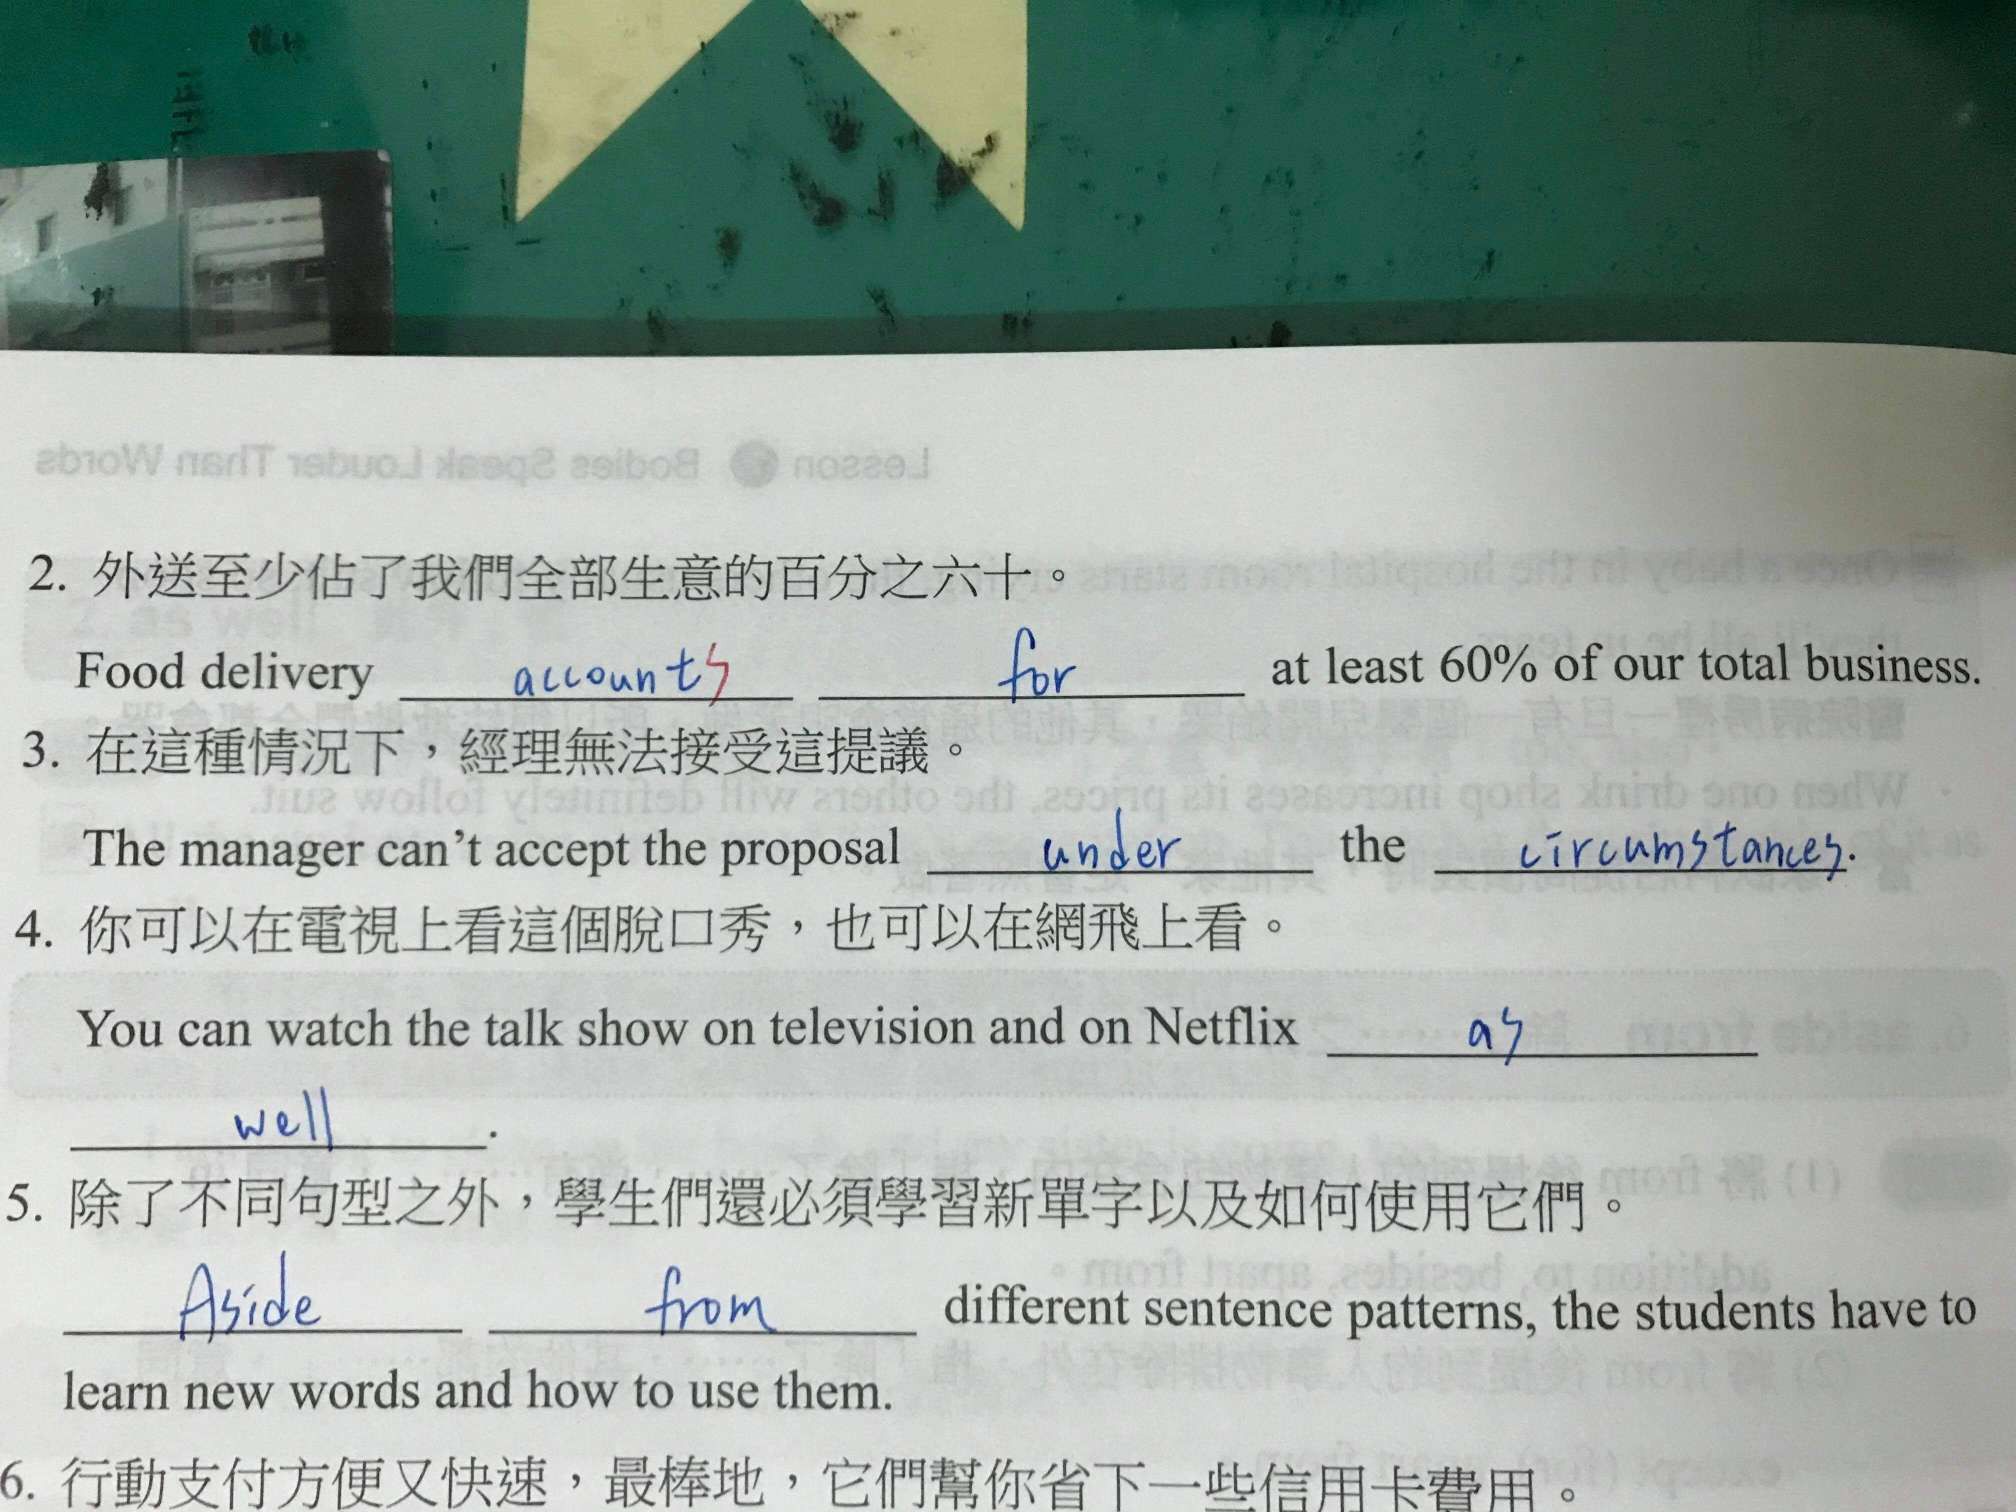 2. 外送至少佔了我們全部生意的百分之六十。
Food delivery accounts for at least 60% of our total business.
3. 在這種情況下，經理無法接受這提議。
The manager can't accept the proposal under the circumstances.
4. 你可以在電視上看這個脫口秀，也可以在網飛上看。
You can watch the talk show on television and on Netflix as
well.
5. 除了不同句型之外，學生們還必須學習新單字以及如何使用它們。
Aside from different sentence patterns, the students have to
learn new words and how to use them.
6. 行動支付方便又快速，最棒地，它們幫你省下一些信用卡費用。